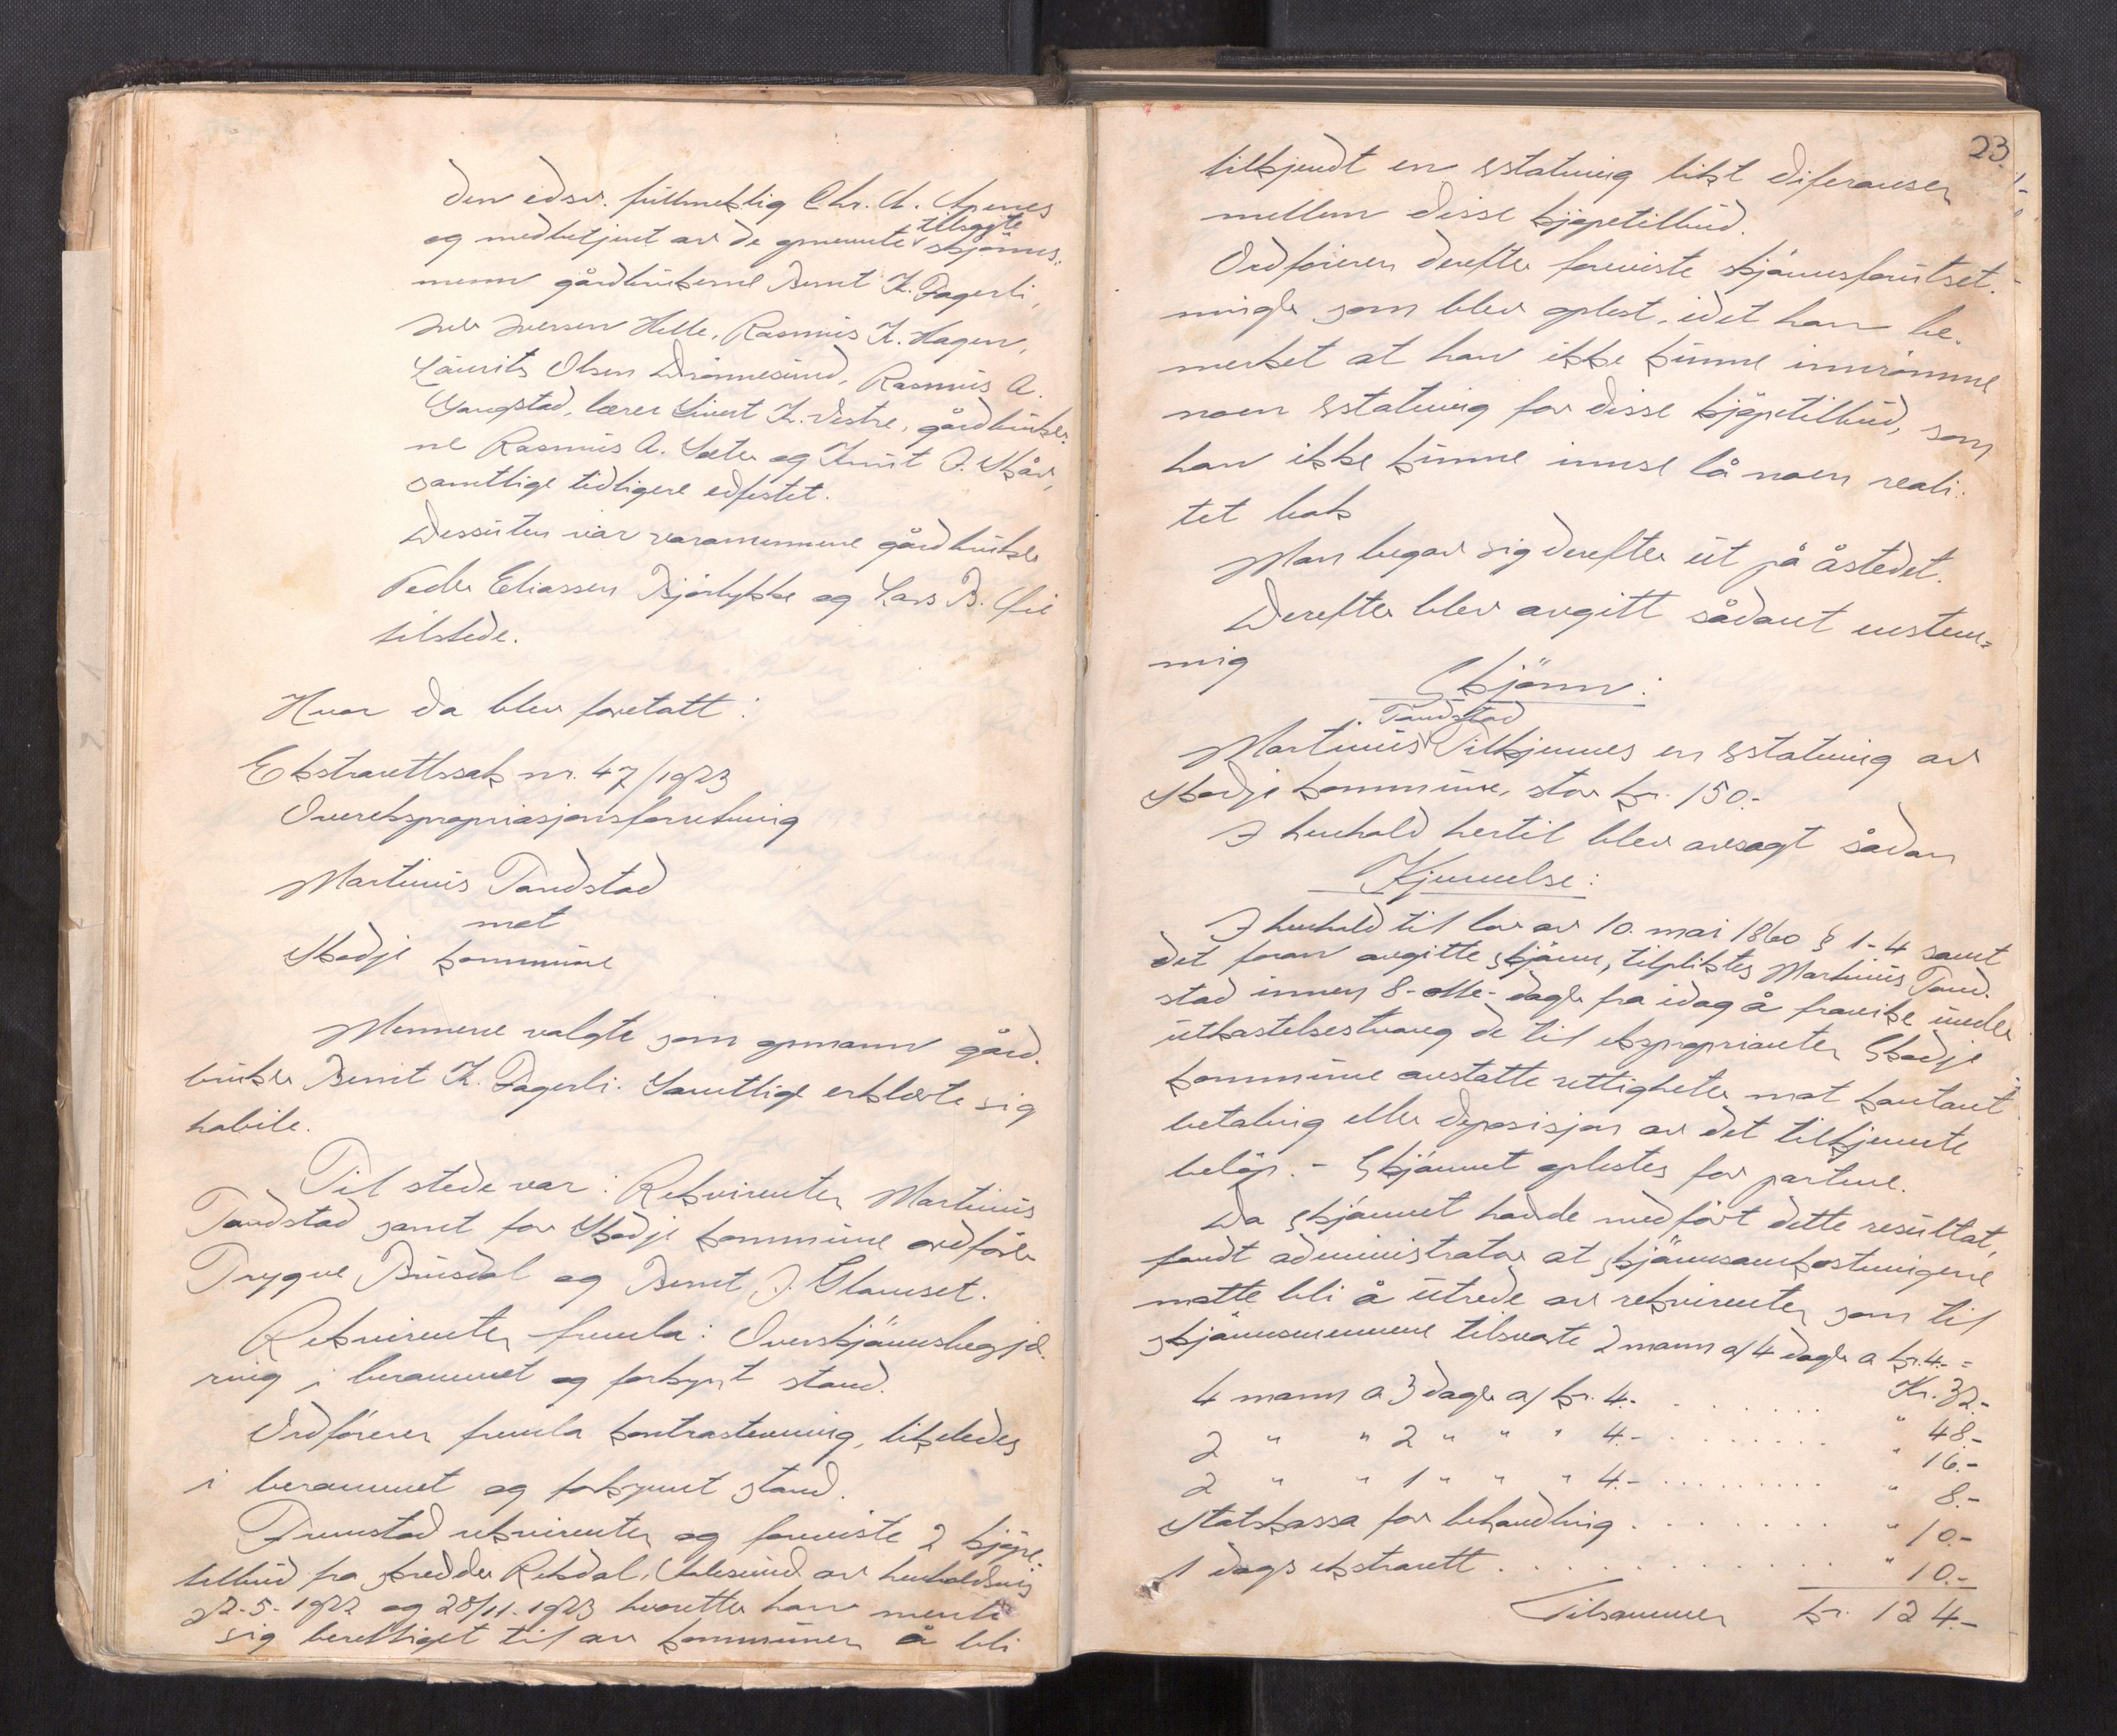 den edsv. fullmektig Chr. A. Apenes
og medbetjent av de opnevnte tilsagte skjönns-
menn gårdbrukerne Bernt K. Fagerli,
Iver Iversen Helle, Rasmus K. Hagen,
Laurits Olsen Drönnesund, Rasmus A.
Vangstad, lærer Sivert K. Vestre, gårdbruker-
ne Rasmus A. Sæter og Knut J. Skår,
samtlige tidligere edfestet.
Dessuten var varamennene gårdbruker
Peder Eliassen Björlykke og Lars B.
tilstede.
Hvor da blev foretatt:
Ekstrarettssak nr. 47/1923
Overekspropriasjonsforretning
Martinus Tandstad
mot
Skodje kommune
Mennene valgte som opmann gård-
bruker Bernt K. Fagerli. Samtlige erklærte sig
habile.
Til stede var: Rekvirenten Martinus
Tandstad samt for Skodje kommune ordförer
Trygve Brusdal og Bernt J. Glamset.
Rekvirenten fremla: Overskjönnsbegjæ-
ring i berammet og forkynt stand.
Ordföreren fremla kontrastevning, likeledes
i berammet og forkynnt stand.
Fremstod rekvirenten og foreviste 2 kjöpe-
tilbud fra skredder Rekdal, Ålesund av henholdsvis
22-5-1922 og 28/11-1923 hvoretter han mente
sig berettiget til av kommunen å bli
23
tilkjendt en erstatning likt diferansen
mellem disse kjöpetilbud.
Ordföreren derefter foreviste skjönnsforutset-
ninger som blev oplest, idet han be-
merket at han ikke kunne innrömme
noen erstatning for disse kjöpetilbud, som
han ikke kunne innse lå noen reali-
tet bak
Man begav sig derefter ut på åstedet.
Derefter blev avgitt sådant enstem-
mig
Skjönn:
Martinus Tandstad Tilkjennes en erstatning av
Skodje kommune, stor kr. 150.-
I henhold hertil blev avsagt sådan
Kjennelse:
I henhold til lov av 10. mai 1860 § 1-4 samt
det foran avgitte skjönn, tilpliktes Martinus Tand-
stad innen 8-otte-dager fra idag å fravike under
utkastelsestvang de til eksproprianten Skodje
kommune avstatte rettigheter mot kontant
betaling eller deposisjon av det tilkjennte
belöp. - Skjönnet oplestes for partene.
Da skjönnet hadde medfört dette resultat,
fandt administrator at skjönnsomkostningene
måtte bli å utrede av rekvirenten som til
skjönnsmennene tilsvarte 2 mann a/ 4 dager a kr. 4.- =
Kr. 32.-
4 mann a 3 dager a/ kr. 4.- . . . . . . . " 48.-
2 " " 2 " " " 4.- . . . . . . . . " 16.-
2 " " 1 " " " 4.- . . . . . . . . . " 8.-
Statskassa for behandling . . . . . . . . " 10.-
1 dags ekstrarett . . . . . . . . . . . . " 10.-
Tilsammen kr. 124.-